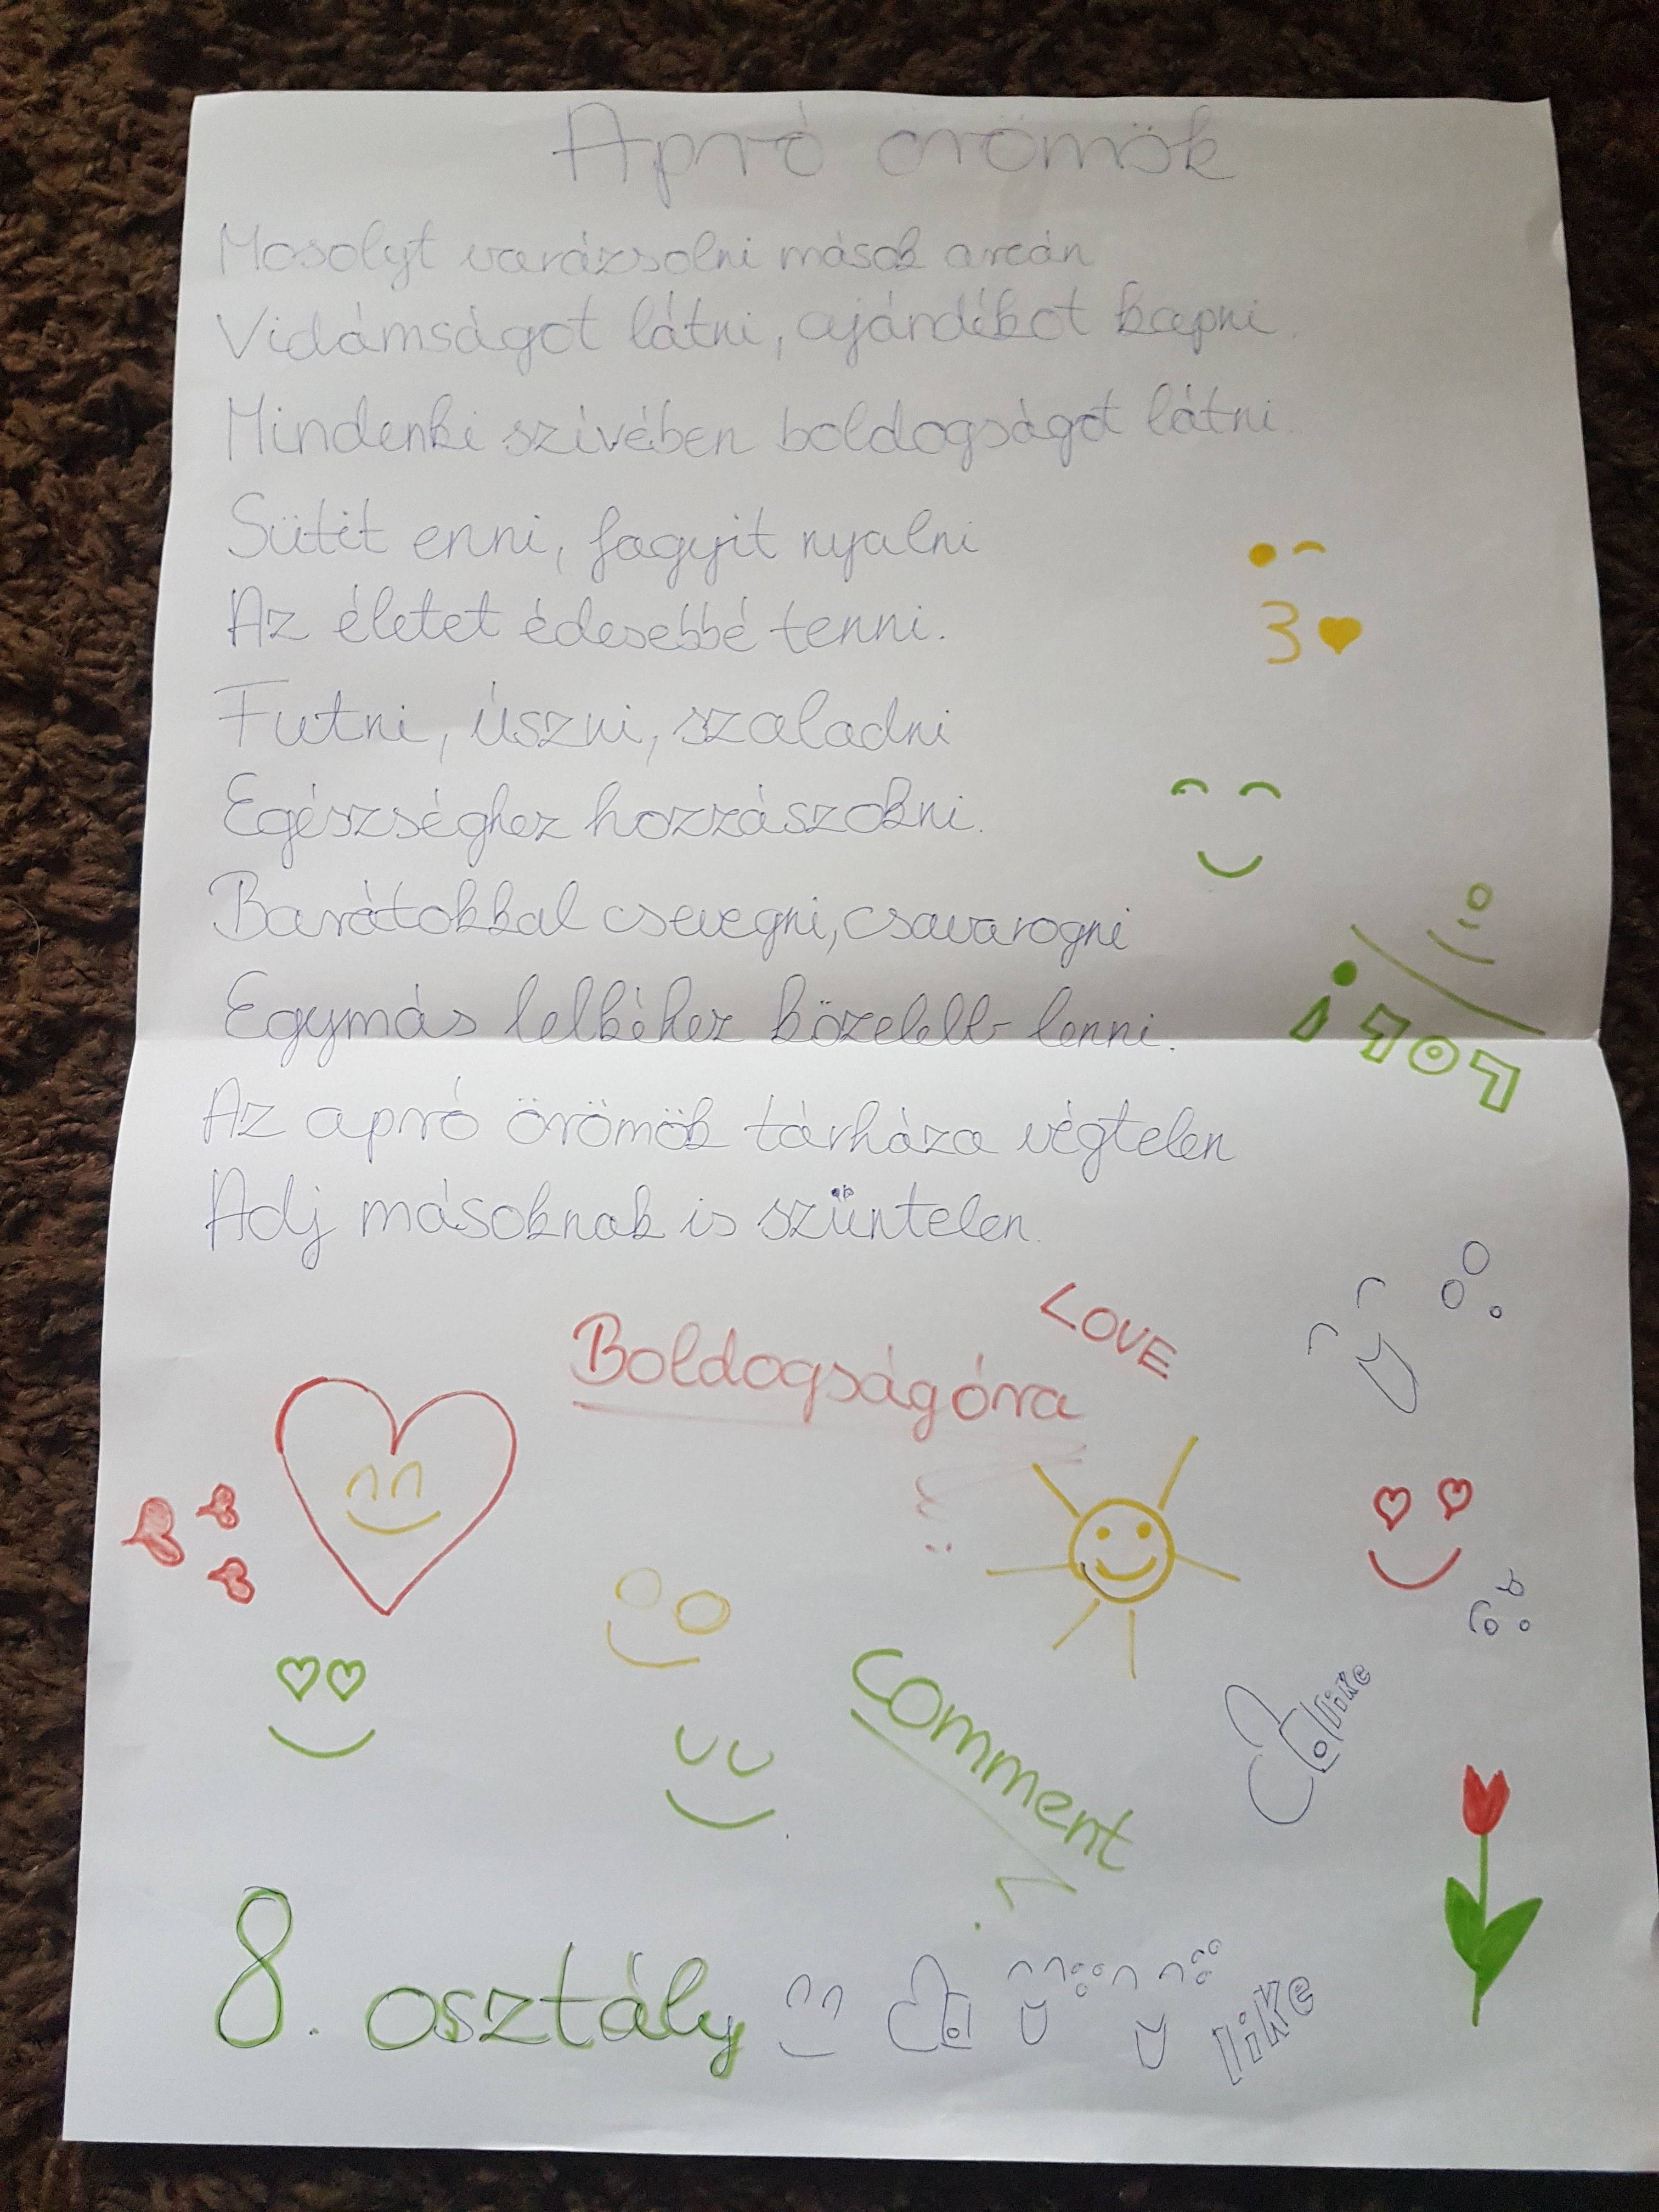 Apró örömök
Mosolyt varázsolni mások arcán
Vidámságot látni, ajándékot kapni.
Mindenki szívében boldogságot látni.
Sütit enni, fagyit nyalni
Az életet édesebbé tenni.
Futni, úszni, szaladni
Egészséghez hozzászokni.
Barátokkal csevegni, csavarogni
Egymás lelkéhez közelebb lenni.
Az apró örömök tárháza végtelen
Adj másoknak is szüntelen.
LOVE
Boldogságóra
Comment
like
8. osztály
like